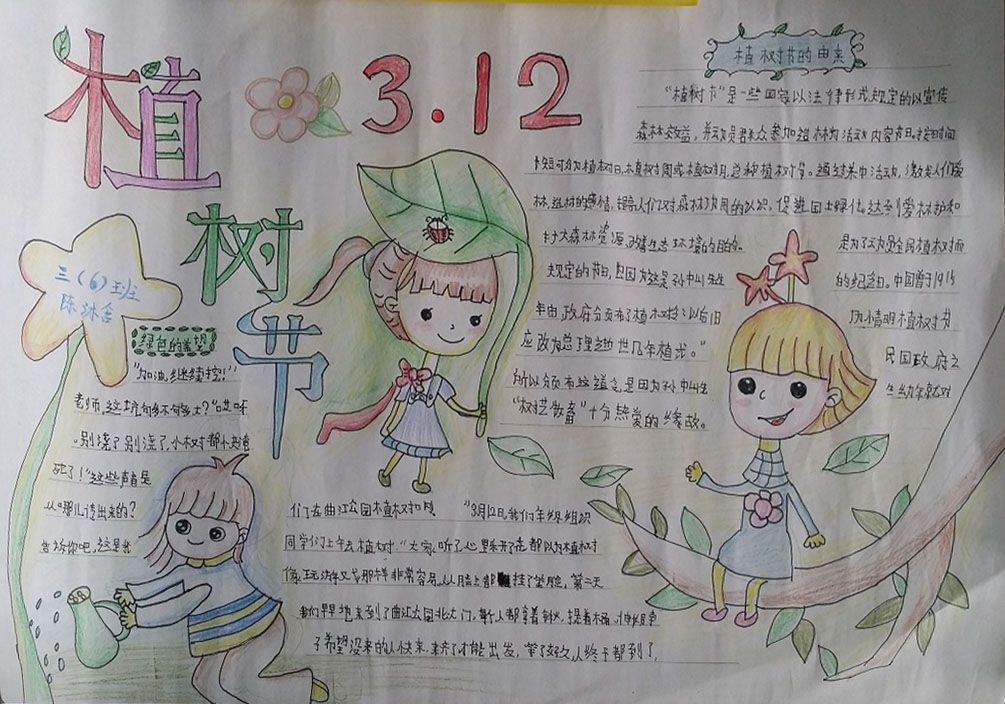 植
树
节
3.12
三(6)班
植树节的由来
"植树节"是一些国家以法律形式规定的以宣传
森林效益,并动员群众参加造林为活动内容的节日。按时间
长短可分为植树日、植树周或植树月,总称植树节。通过某中活动,激发人们爱
林,造林的感情,提高人们对森林功用的认识,促进国土绿化,达到爱林护和
扩大森林资源,改善生态环境的目的。
是为了动员全民植树而
夫规定的节日,因为这是孙中山先生
的纪念日。中国曾于1915
年由,政府分页布了植树
以清明植树节
应改为总理逝世几年植式。"
民国政府之
所以颁布这道令,是因为孙中山生
生幼年就对
"树艺牧畜"十分热爱的缘故。
绿色的希望
"加油,继续挖!"
老师,这坑向多不够多大?"哎呀
,别浇了别浇了,小树都
死了!"这些声音是
从哪儿传出来的?
告诉你吧,这是我
们在曲江公园植树
"3月12日,我们年级组织
同学们上午去植树."大家听了心里乐开了花都以为植树
像玩游戏那样非常容易,从脸上都挂了笑脸,第二天
我们早早地来到了曲江公园北大门,
子希望没来的人快来,来齐了才能出发,等了好久人终于都到了,